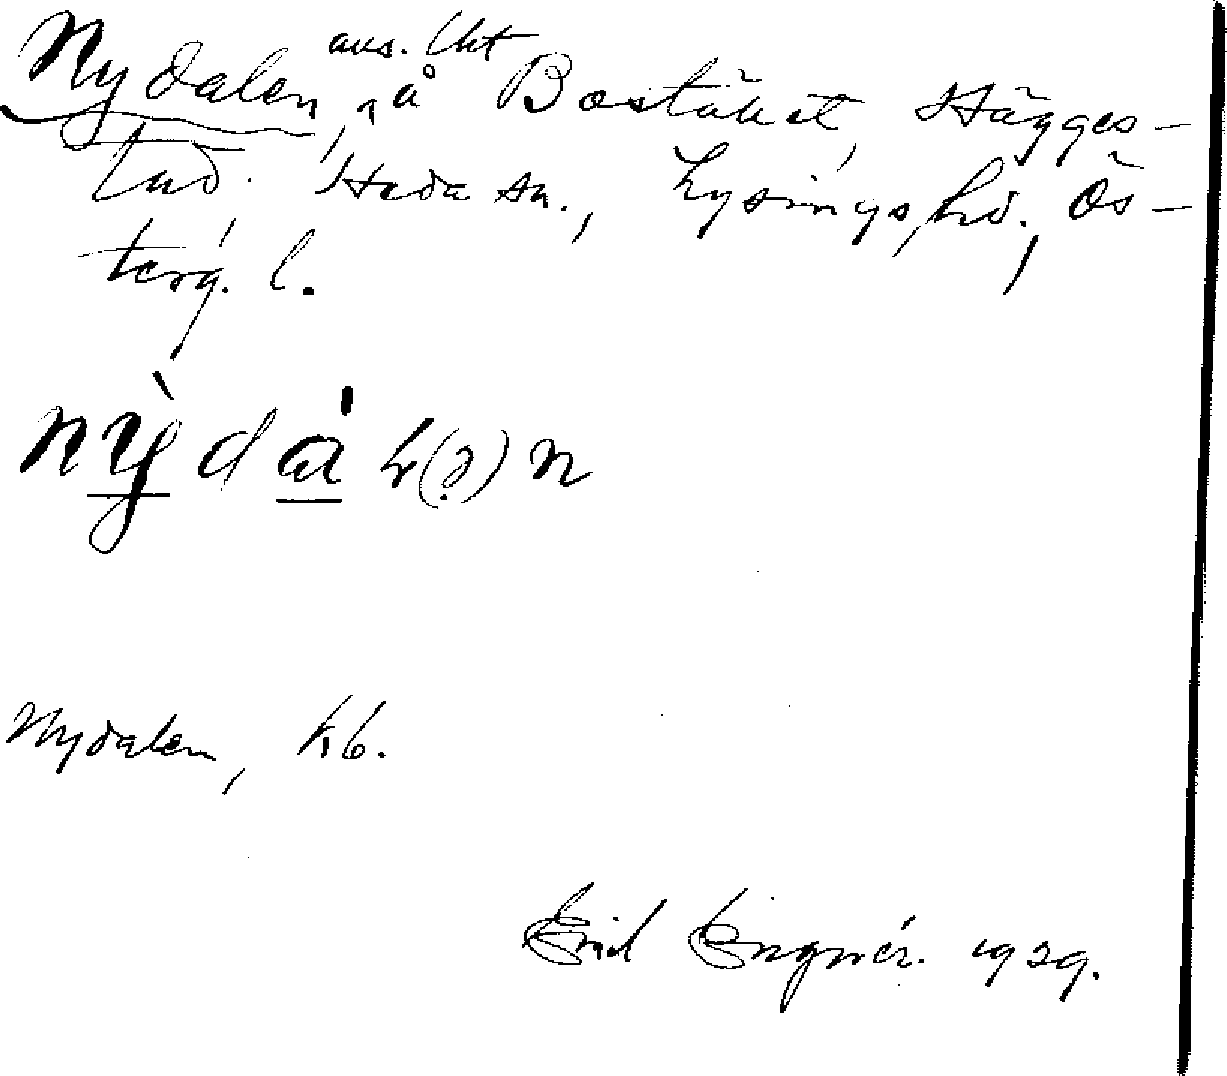 Nydalen, avs. lht å Bostället, Hägges-
tad. Heda sn., Lysings hd., Ös-
terg. l.
nỳdàl(ə)n
Nydalen, kb.
Emil Engnér. 1929.